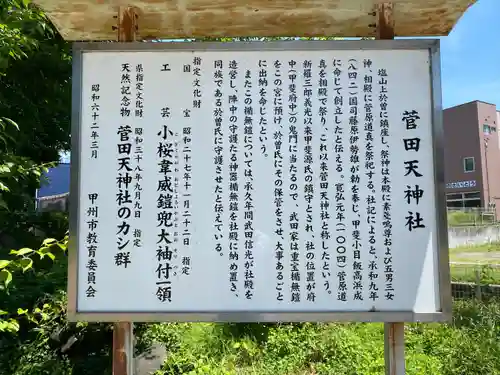 菅田天神社
塩山上於曽に鎮座し、祭神は本殿に素戔嗚尊および五男三女
神、相殿に菅原道真を祭祀する。社記によると、承和九年
(八四二)国司藤原伊勢雄が勅を奉じ、甲斐少目飯高浜成
に命じて創立したと伝える。寛弘元年(一〇〇四)菅原道
真を相殿で祭り、これ以来菅田天神社と称したという。
新羅三郎義光以来甲斐源氏の鎮守とされ、社の位置が府
中(甲斐府中)の鬼門に当たるので、武田家は重宝楯無鎧
をこの宮に預け、於曽氏にその保管をさせ、大事あるごと
に出納を命じたという。
またこの楯無鎧については、承久年間武田信光が社殿を
造営し、陣中の守護たる神器楯無鎧を社殿に納め置き、
同族である於曽氏に守護させたと伝えている。
指定文化財
国宝 昭和二十七年十一月二十二日 指定
工芸 小桜韋威鎧兜大袖付一領
県指定文化財 昭和三十八年九月九日 指定
天然記念物 菅田天神社のカシ群
昭和六十二年三月
甲州市教育委員会